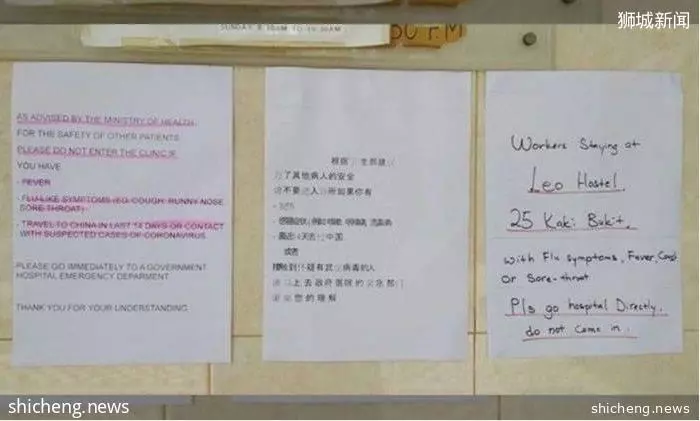 狮城新闻
SUNDAY
AS ADVISED BY THE MINISTRY OF HEALTH
FOR THE SAFETY OF OTHER PATIENTS
PLEASE DO NOT ENTER THE CLINIC IF
YOU HAVE
- FEVER
- FLU-LIKE SYMPTOMS (EG. COUGH, RUNNY NOSE
SORE THROAT)
- TRAVEL TO CHINA IN LAST 14 DAYS OR CONTACT
WITH SUSPECTED CASES OF CORONAVIRUS
PLEASE GO IMMEDIATELY TO A GOVERNMENT
HOSPITAL EMERGENCY DEPARMENT
THANK YOU FOR YOUR UNDERSTANDING
根据 生部建
了其他病人的安全
不要 入 所如果你有
中国
或者
接触到 疑有武 病毒的人
上去政府医院的 急部
您的理解
Workers Staying at
Leo Hostel.
25 Kaki Bukit.
with Flu symptoms, Fever,
or Sore-throat
Pls go hospital Directly,
do not come in.
shicheng.news
shicheng.news